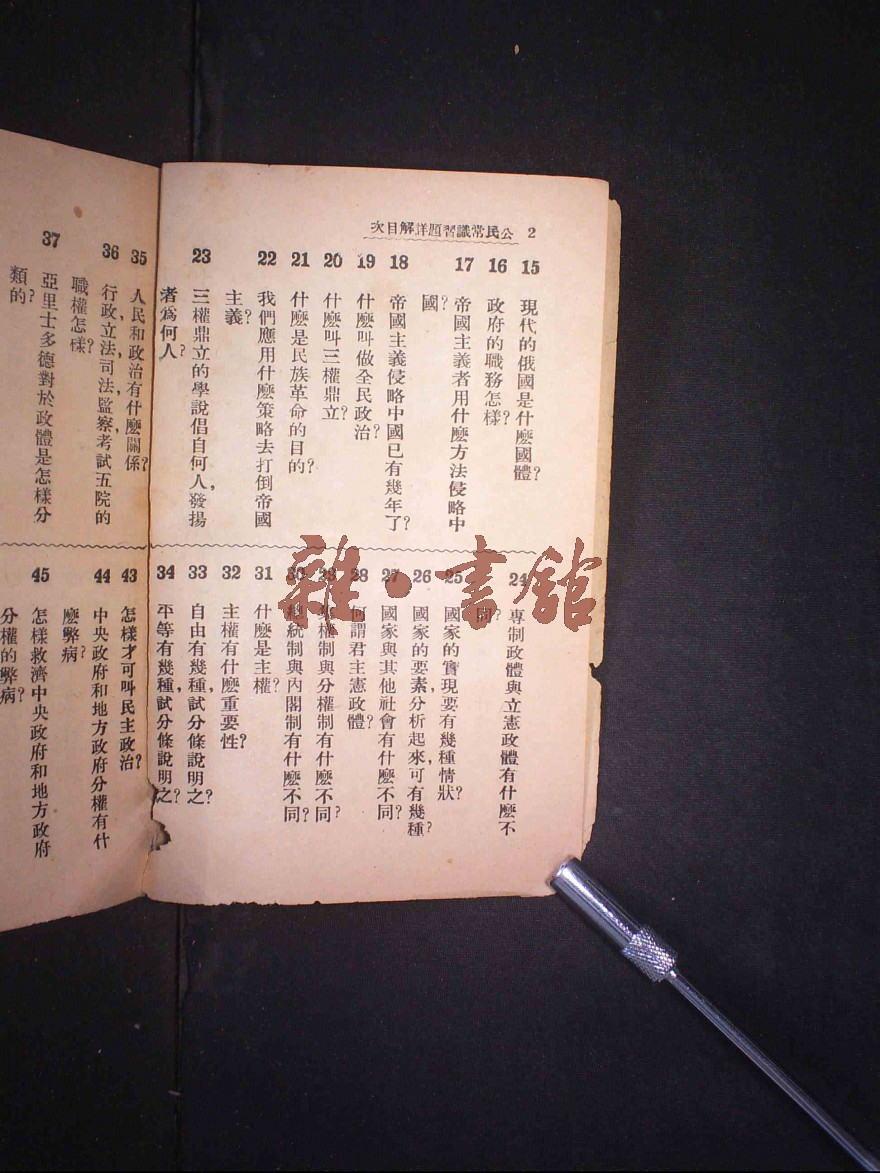 2 公民常識習題詳解目次
15 現代的俄國是什麼國體?
16 政府的職務怎樣?
17 帝國主義者用什麼方法侵略中
國?
18 帝國主義侵略中國已有幾年了?
19 什麼叫做全民政治?
20 什麼叫三權鼎立?
21 什麼是民族革命的目的?
22 我們應用什麼策略去打倒帝國
主義?
23 三權鼎立的學說倡自何人,發揚
者爲何人?
24 專制政體與立憲政體有什麼不
同?
25 國家的實現要有幾種情狀?
26 國家的要素,分析起來,可有幾種?
27 國家與其他社會有什麼不同?
28 何謂君主憲政體?
29 集權制與分權制有什麼不同?
30 總統制與內閣制有什麼不同?
31 什麼是主權?
32 主權有什麼重要性?
33 自由有幾種,試分條說明之?
34 平等有幾種,試分條說明之?
35 人民和政治有什麼關係?
36 行政,立法,司法,監察,考試五院的
職權怎樣?
37 亞里士多德對於政體是怎樣分
類的?
43 怎樣才可叫民主政治?
44 中央政府和地方政府分權有什
麼弊病?
45 怎樣救濟中央政府和地方政府
分權的弊病?
雜·書館